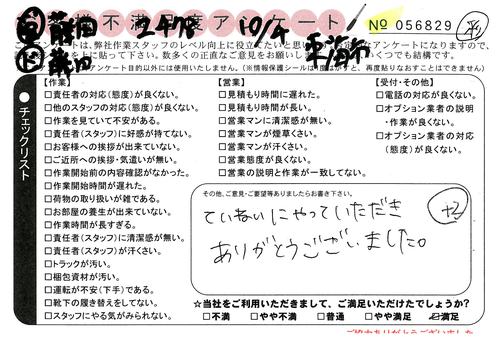 不満度アンケート No 056829
2478 10/4 東海市
このアンケートは、弊社作業スタッフのレベル向上に役立てたいと思い
アンケート目的以外には使用いたしません。(※情報保護シールは1度はがすと、再度貼りなおすことはできません)
チェックリスト
【作業】
□責任者の対応(態度)が良くない。
□他のスタッフの対応(態度)が良くない。
□作業を見ていて不安がある。
□責任者(スタッフ)に好感が持てない。
□お客様への挨拶が出来ていない。
□ご近所への挨拶・気遣いが無い。
□作業開始前の内容確認がなかった。
□作業開始時間が遅れた。
□荷物の取り扱いが雑である。
□お部屋の養生が出来ていない。
□作業時間が長すぎる。
□責任者(スタッフ)に清潔感が無い。
□責任者(スタッフ)が汗くさい。
□トラックが汚い。
□梱包資材が汚い。
□運転が不安(下手)である。
□靴下の履き替えをしてない。
□スタッフにやる気がみられない。
【営業】
□見積もり時間に遅れた。
□見積もり時間が長い。
□営業マンに清潔感が無い。
□営業マンが煙草くさい。
□営業マンが汗くさい。
□営業態度が良くない。
□営業の説明と作業が一致してない。
【受付・その他】
□電話の対応が良くない。
□オプション業者の説明
・作業が良くない。
□オプション業者の対応
(態度)が良くない。
その他、ご意見・ご要望等ありましたらお書き下さい。
ていねいにやっていただき
ありがとうございました。
☆当社をご利用いただきまして、ご満足いただけたでしょうか?
□不満 □やや不満 □普通 □やや満足 ☑満足